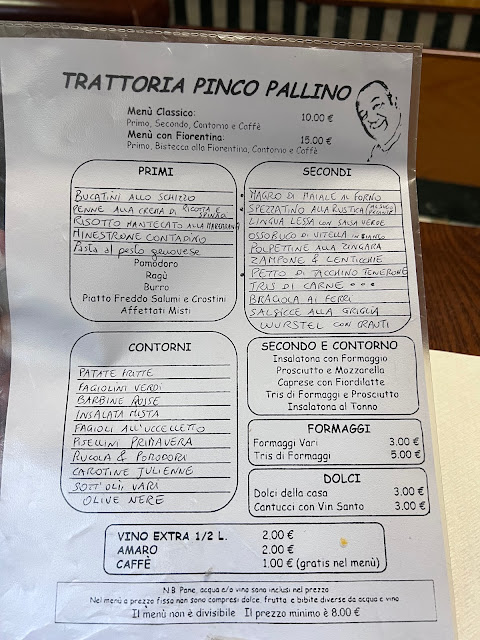 TRATTORIA PINCO PALLINO
Menù Classico: 10.00 €
Primo, Secondo, Contorno e Caffè
Menù con Fiorentina: 15.00 €
Primo, Bistecca alla Fiorentina, Contorno e Caffè
PRIMI
BUCATINI ALLO SCHIZZO
PENNE ALLA CREMA DI RICOTTA E SPINACI
RISOTTO MANTECATO ALLA MAREMMANA
MINESTRONE CONTADINO
Pasta al pesto genovese
Pomodoro
Ragù
Burro
Piatto Freddo Salumi e Crostini
Affettati Misti
SECONDI
MAGRO DI MAIALE AL FORNO
SPEZZATINO ALLA RUSTICA
LINGUA LESSA CON SALSA VERDE
OSSOBUCO DI VITELLA IN BIANCO
POLPETTINE ALLA ZINGARA
ZAMPONE & LENTICCHIE
PETTO DI TACCHINO TENERONE
TRIS DI CARNE
BRACIOLA AI FERRI
SALSICCE ALLA GRIGLIA
WURSTEL CON CRAUTI
CONTORNI
PATATE FRITTE
FAGIOLINI VERDI
BARBINE ROSSE
INSALATA MISTA
FAGIOLI ALL'UCCELLETTO
PISELLINI PRIMAVERA
RUCOLA & POMODORI
CAROTINE JULIENNE
SOTT'OLII VARI
OLIVE NERE
SECONDO E CONTORNO
Insalatona con Formaggio
Prosciutto e Mozzarella
Caprese con Fiordilatte
Tris di Formaggi e Prosciutto
Insalatona al Tonno
FORMAGGI
Formaggi Vari 3.00 €
Tris di Formaggi 5.00 €
DOLCI
Dolci della casa 3.00 €
Cantucci con Vin Santo 3.00 €
VINO EXTRA 1/2 L. 2.00 €
AMARO 2.00 €
CAFFÈ 1.00 € (gratis nel menù)
N.B. Pane, acqua e/o vino sono inclusi nel prezzo
Nel menù a prezzo fisso non sono compresi dolce, frutta, e bibite diverse da acqua e vino
Il menù non è divisibile Il prezzo minimo è 8.00 €